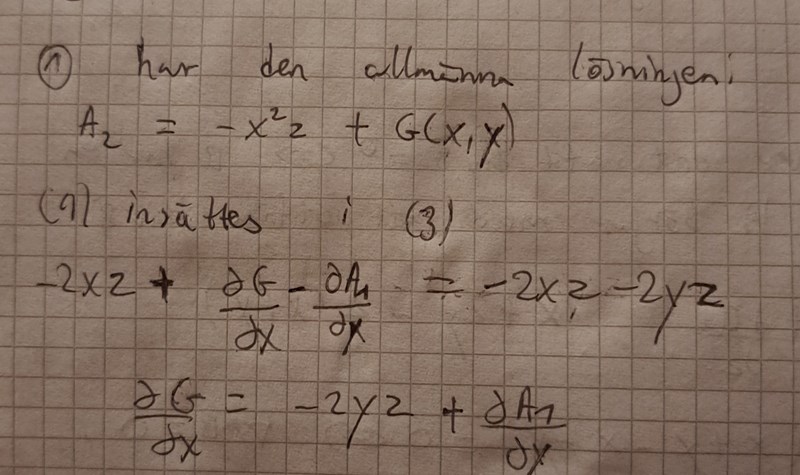 ① har den allmänna lösningen:
A₂ = -x²z + G(x,y)
(1) insättes i (3)
-2xz + ∂G/∂x - ∂A₁/∂y = -2xz - 2yz
∂G/∂x = -2yz + ∂A₁/∂y